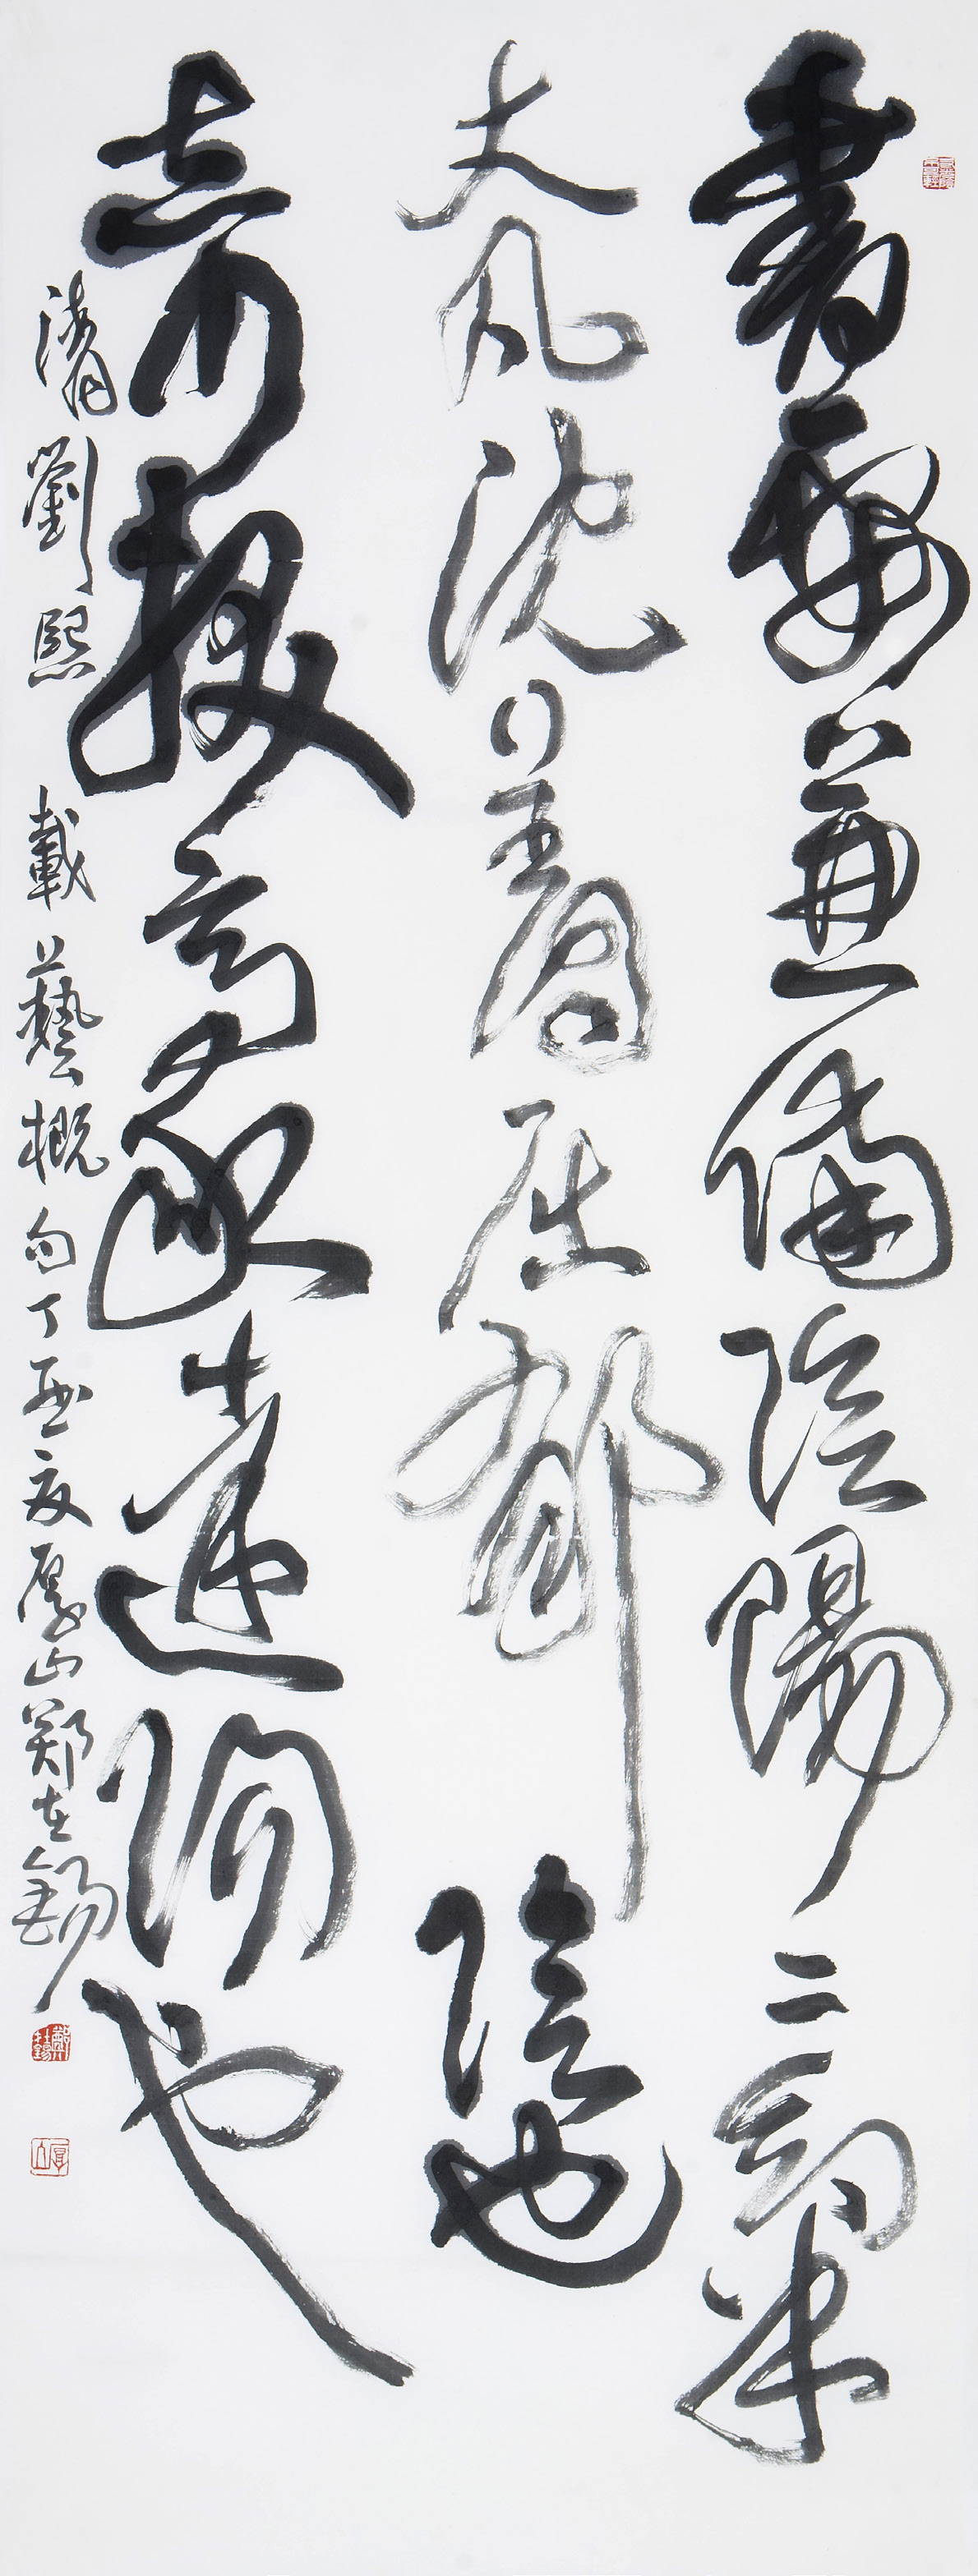 書要兼備陰陽二氣
大凡沈着屈鬱陰也
奇拔豪達陽也
清劉熙載藝概句丁亥夏厚山鄭在錫